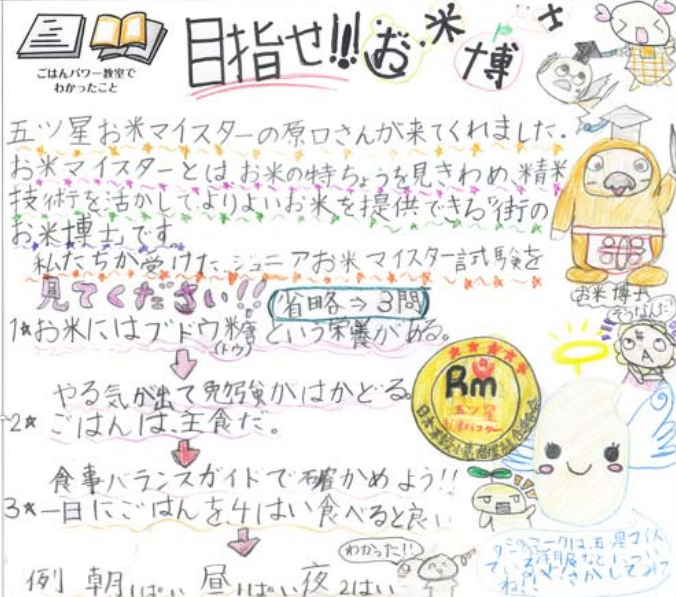 ごはんパワー教室で
わかったこと
目指せ!!お米博士
五ツ星お米マイスターの原口さんが来てくれました。
お米マイスターとはお米の特ちょうを見きわめ、精米
技術を活かしてよりよいお米を提供できる「街の
お米博士」です。
私たちが受けた、ジュニアお米マイスター試験を
見てください!!
省略⇒3問
1★お米にはブドウ糖という栄養がある。
(トウ)
やる気が出て勉強がはかどる。
2★ごはんは、主食だ。
食事バランスガイドで確かめよう!!
3★一日にごはんを4はい食べると良い
例 朝1ぱい 昼1ぱい 夜2はい
わかった!!
お米博士
そうなんだ!
Rm
五ツ星
お米マイスター
このマークは、五ツ星マイス